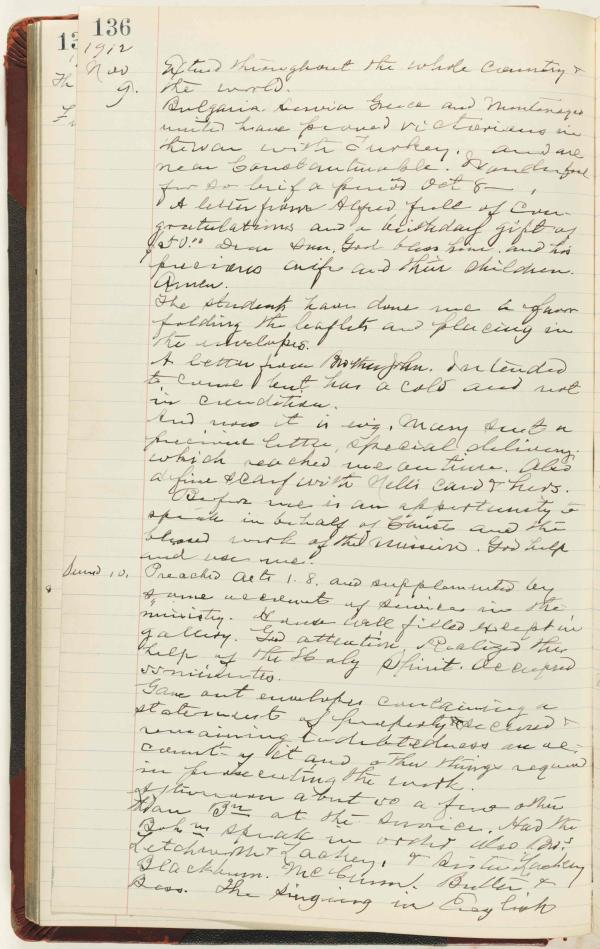 136
1912
Nov
9.
Extend throughout the whole country &
the world.
Bulgaria Servia Greece and Montenegro
united have proved victorious in
the war with Turkey. and are
near Constantinople. Wonderful
for so brief a period Oct 8
A letter from Alfred full of con-
gratulations and a birthday gift of
$50.00 Dear Son, God bless him. and his
precious wife and their children.
Amen.
The students have done me a favor
folding the leaflets and placing in
the envelopes.
A letter from Brother John. Intended
to come but has a cold and not
in condition.
And now it is evg. Mary sent a
precious letter, special delivery.
which reached me on time. Also
a fine scarf with Nellis card & hers.
Before me is an opportunity to
speak in behalf of Christ and the
blessed work of the Mission. God help
and use me.
10. Preached Acts 1.8. and supplemented by
some account of services in the
ministry. House well filled except in
gallery. Good attention. Realized the
help of the Holy Spirit. Occupied
55 minutes.
Gave out envelopes containing a
statement of property received &
remaining indebtedness on ac-
count of it and other things required
in prosecuting the work.
Afternoon about 20 a few other
than Bn at the service. Had the
Bohms speak in order also Bros
Letchworth & Lackey, & Sister Lackey
Blackburn. McCunn. Butler &
Bess. The singing in English